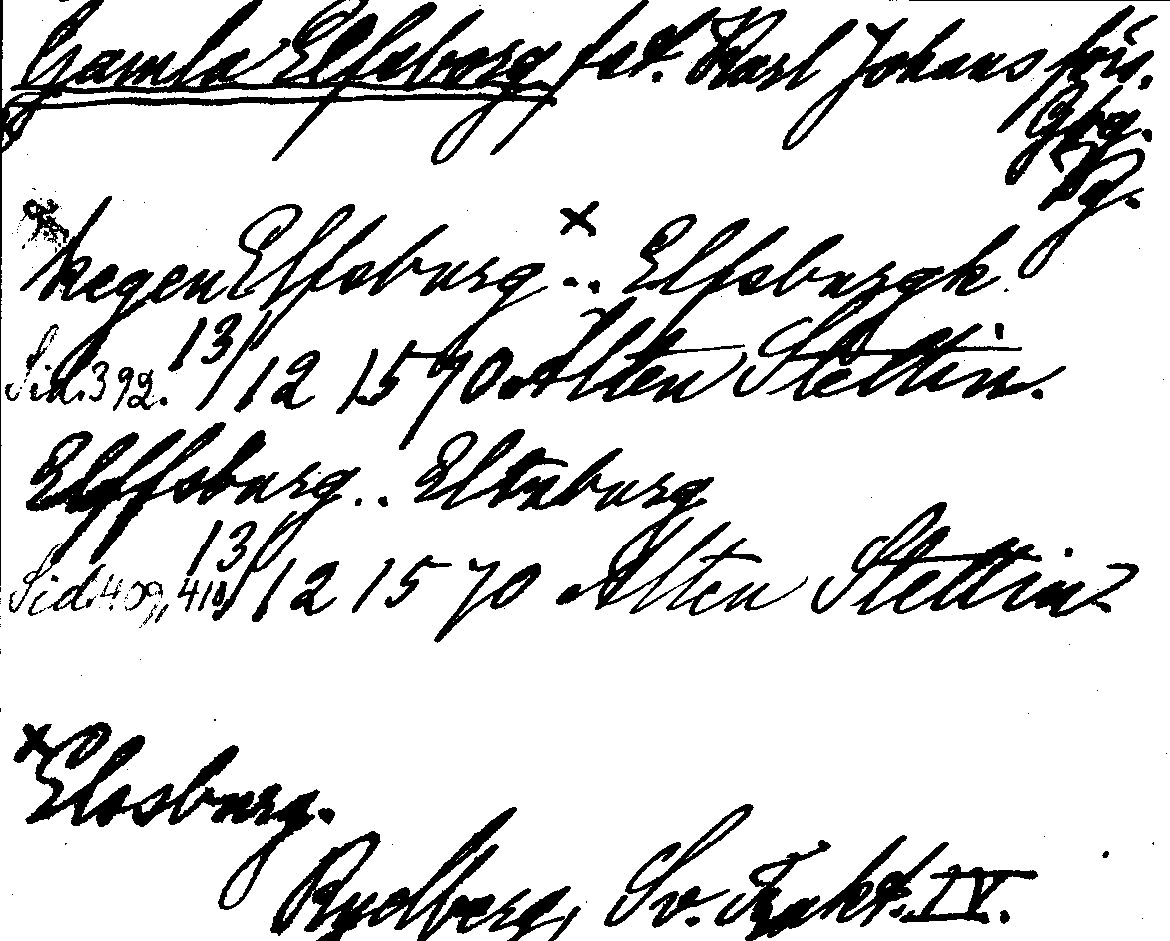 Gamla Elfsborg fst. Karl Johans förs.
Gbg.
Vg.
x
kegen Elfsburg .. Elfsburgk
Sid. 392. 13/12 1570 Alten Stettin.
Elffsburg .. Eltzburg
Sid. 409, 410 13/12 1570 Alten Stettin
x Elosburg.
Rydberg, Sv. Trakt. IV.